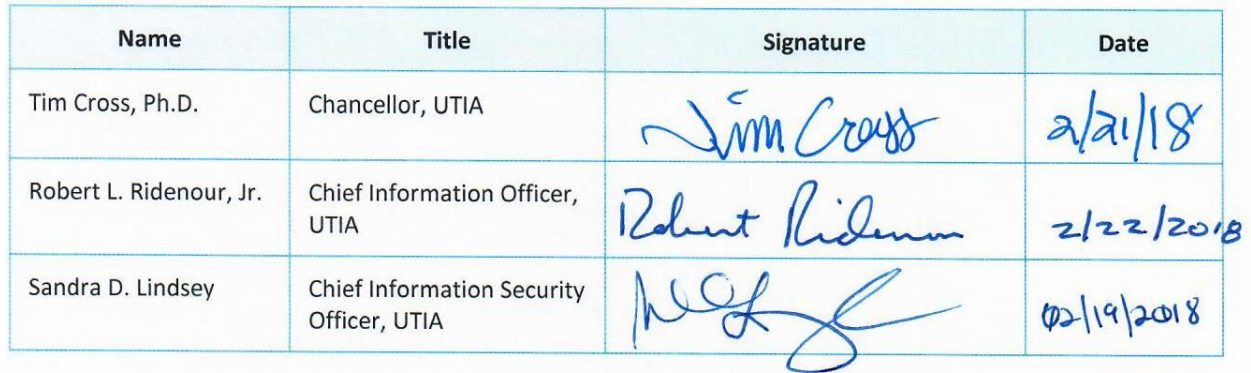 Name Title Signature Date
Tim Cross, Ph.D. Chancellor, UTIA Tim Cross 2/21/18
Robert L. Ridenour, Jr. Chief Information Officer,
UTIA Robert Ridenour 2/22/2018
Sandra D. Lindsey Chief Information Security
Officer, UTIA 02/19/2018